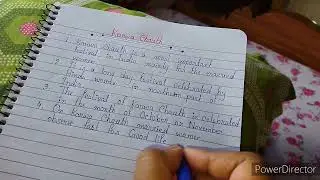 Karwa Chauth
1. Karwa Chauth is a most important
festival in India mostly for the married
women.
2. It is a one day festival celebrated by
Hindu women in northern part of
India.
3. The festival of Karwa Chauth is celebrated
in the month of October or November.
4. On Karwa Chauth married women
observe fast for Good life
PowerDirector